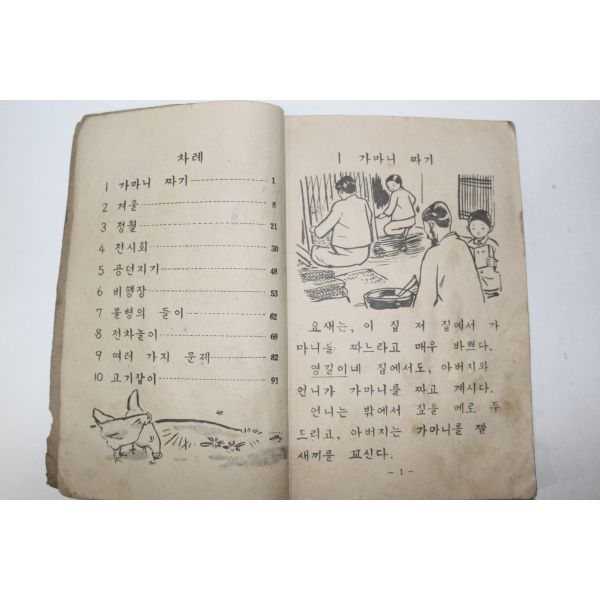 차례
1 가마니 짜기 1
2 겨울 8
3 정월 21
4 전시회 30
5 공던지기 48
6 비행장 53
7 물병의 들이 62
8 전차놀이 69
9 여러 가지 문제 82
10 고기잡이 91
1 가마니 짜기
요새는, 이 집 저 집에서 가
마니를 짜느라고 매우 바쁘다.
영길이네 집에서도, 아버지와
언니가 가마니를 짜고 계시다.
언니는 밖에서 짚을 메로 두
드리고, 아버지는 가마니를 짤
새끼를 꼬신다.
- 1 -